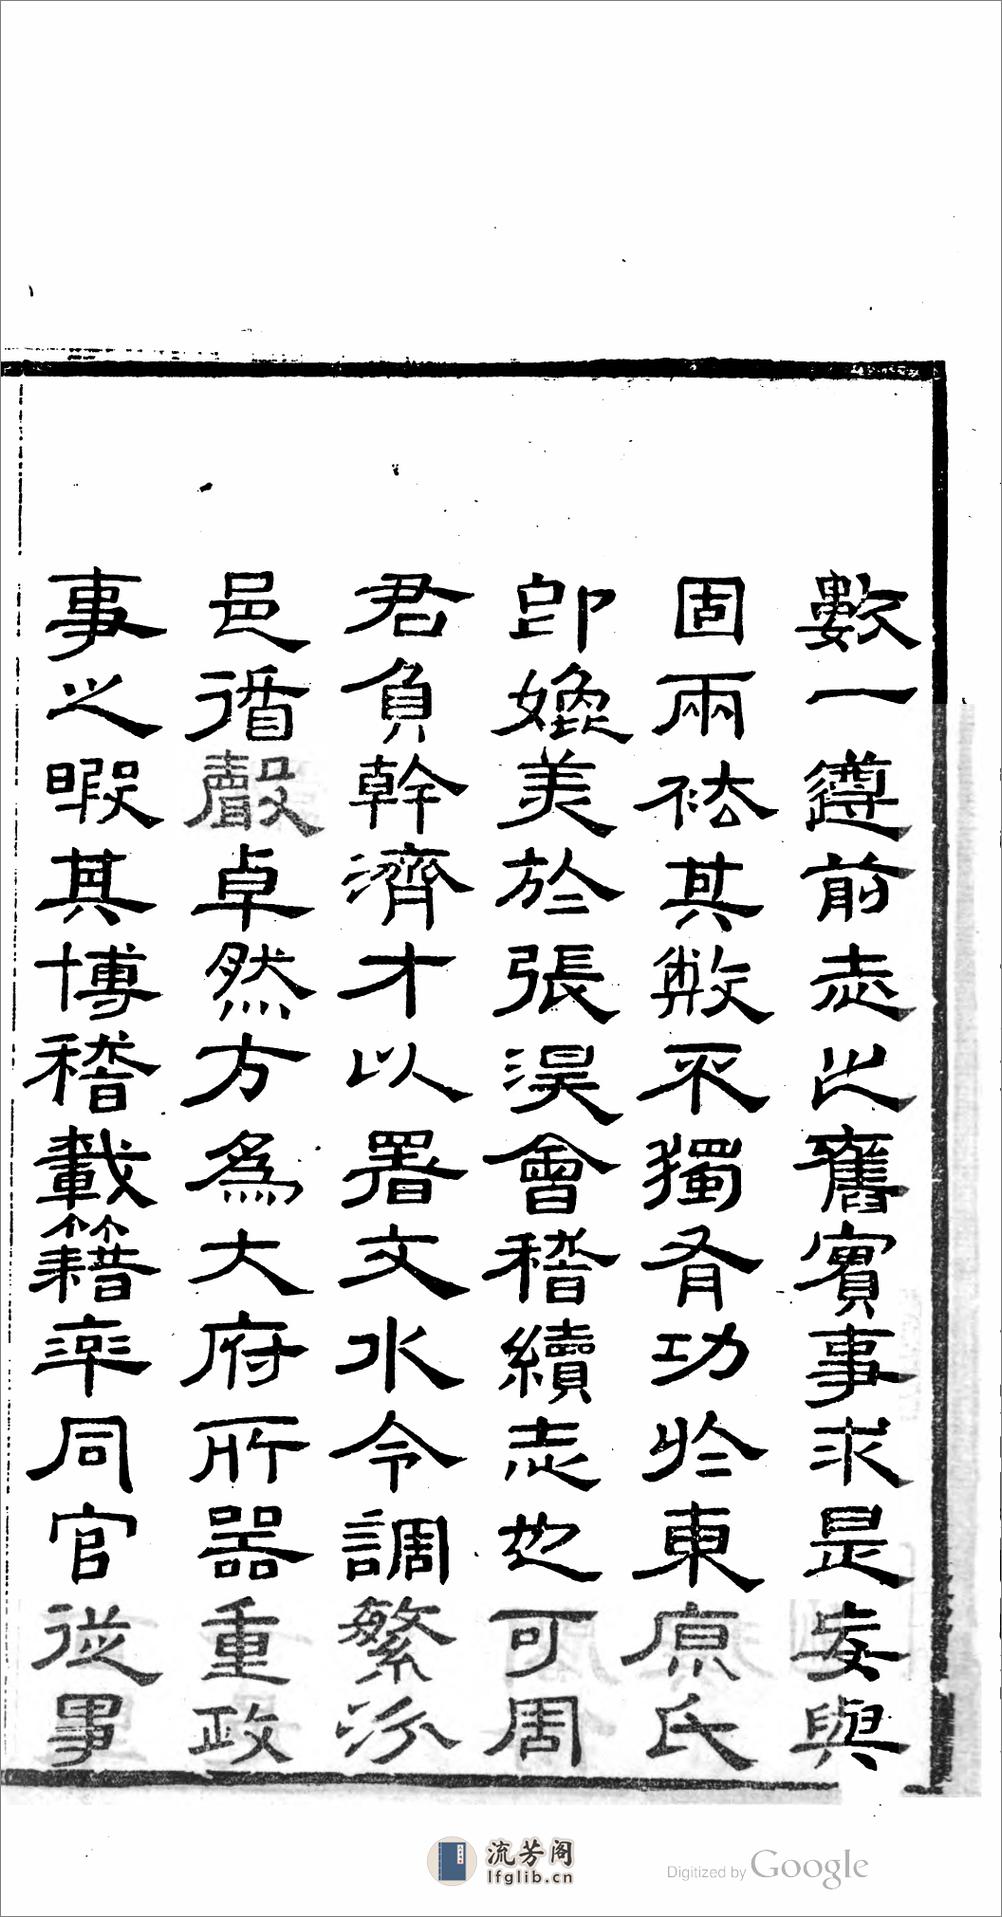 數一遵前志之舊實事求是妄與
固兩袪其敝不獨有功於東原氏
卽媲美於張淏會稽續志也可周
君負幹濟才以署文水令調繁汾
邑循聲卓然方為大府所器重政
事之暇其博稽載籍率同官從事
流芳阁
lfglib.cn
Digitized by Google